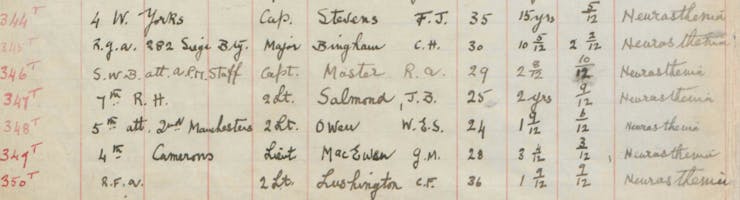 344T 4 W. Yorks Cap. Stevens F. J. 35 15 yrs 5/12 Neurasthenia
345T R.g.a. 282 Siege Bty. Major Bingham C. H. 30 10 5/12 2 3/12 Neurasthenia
346T S.W.B. att. a.P.M. Staff Capt. Master R. a. 29 2 8/12 10/12 Neurasthenia
347T 7th R. H. 2Lt. Salmond, J.B. 25 2 yrs 9/12 Neurasthenia
348T 5th att. 2nd Manchesters 2Lt. Owen W.E.S. 24 1 9/12 6/12 Neurasthenia
349T 4th Camerons Lieut MacEwan g.M. 28 3 3/12 Neurasthenia
350T R.F.a. 2 Lt. Lushington C.F. 36 1 9/12 9/12 Neurasthenia